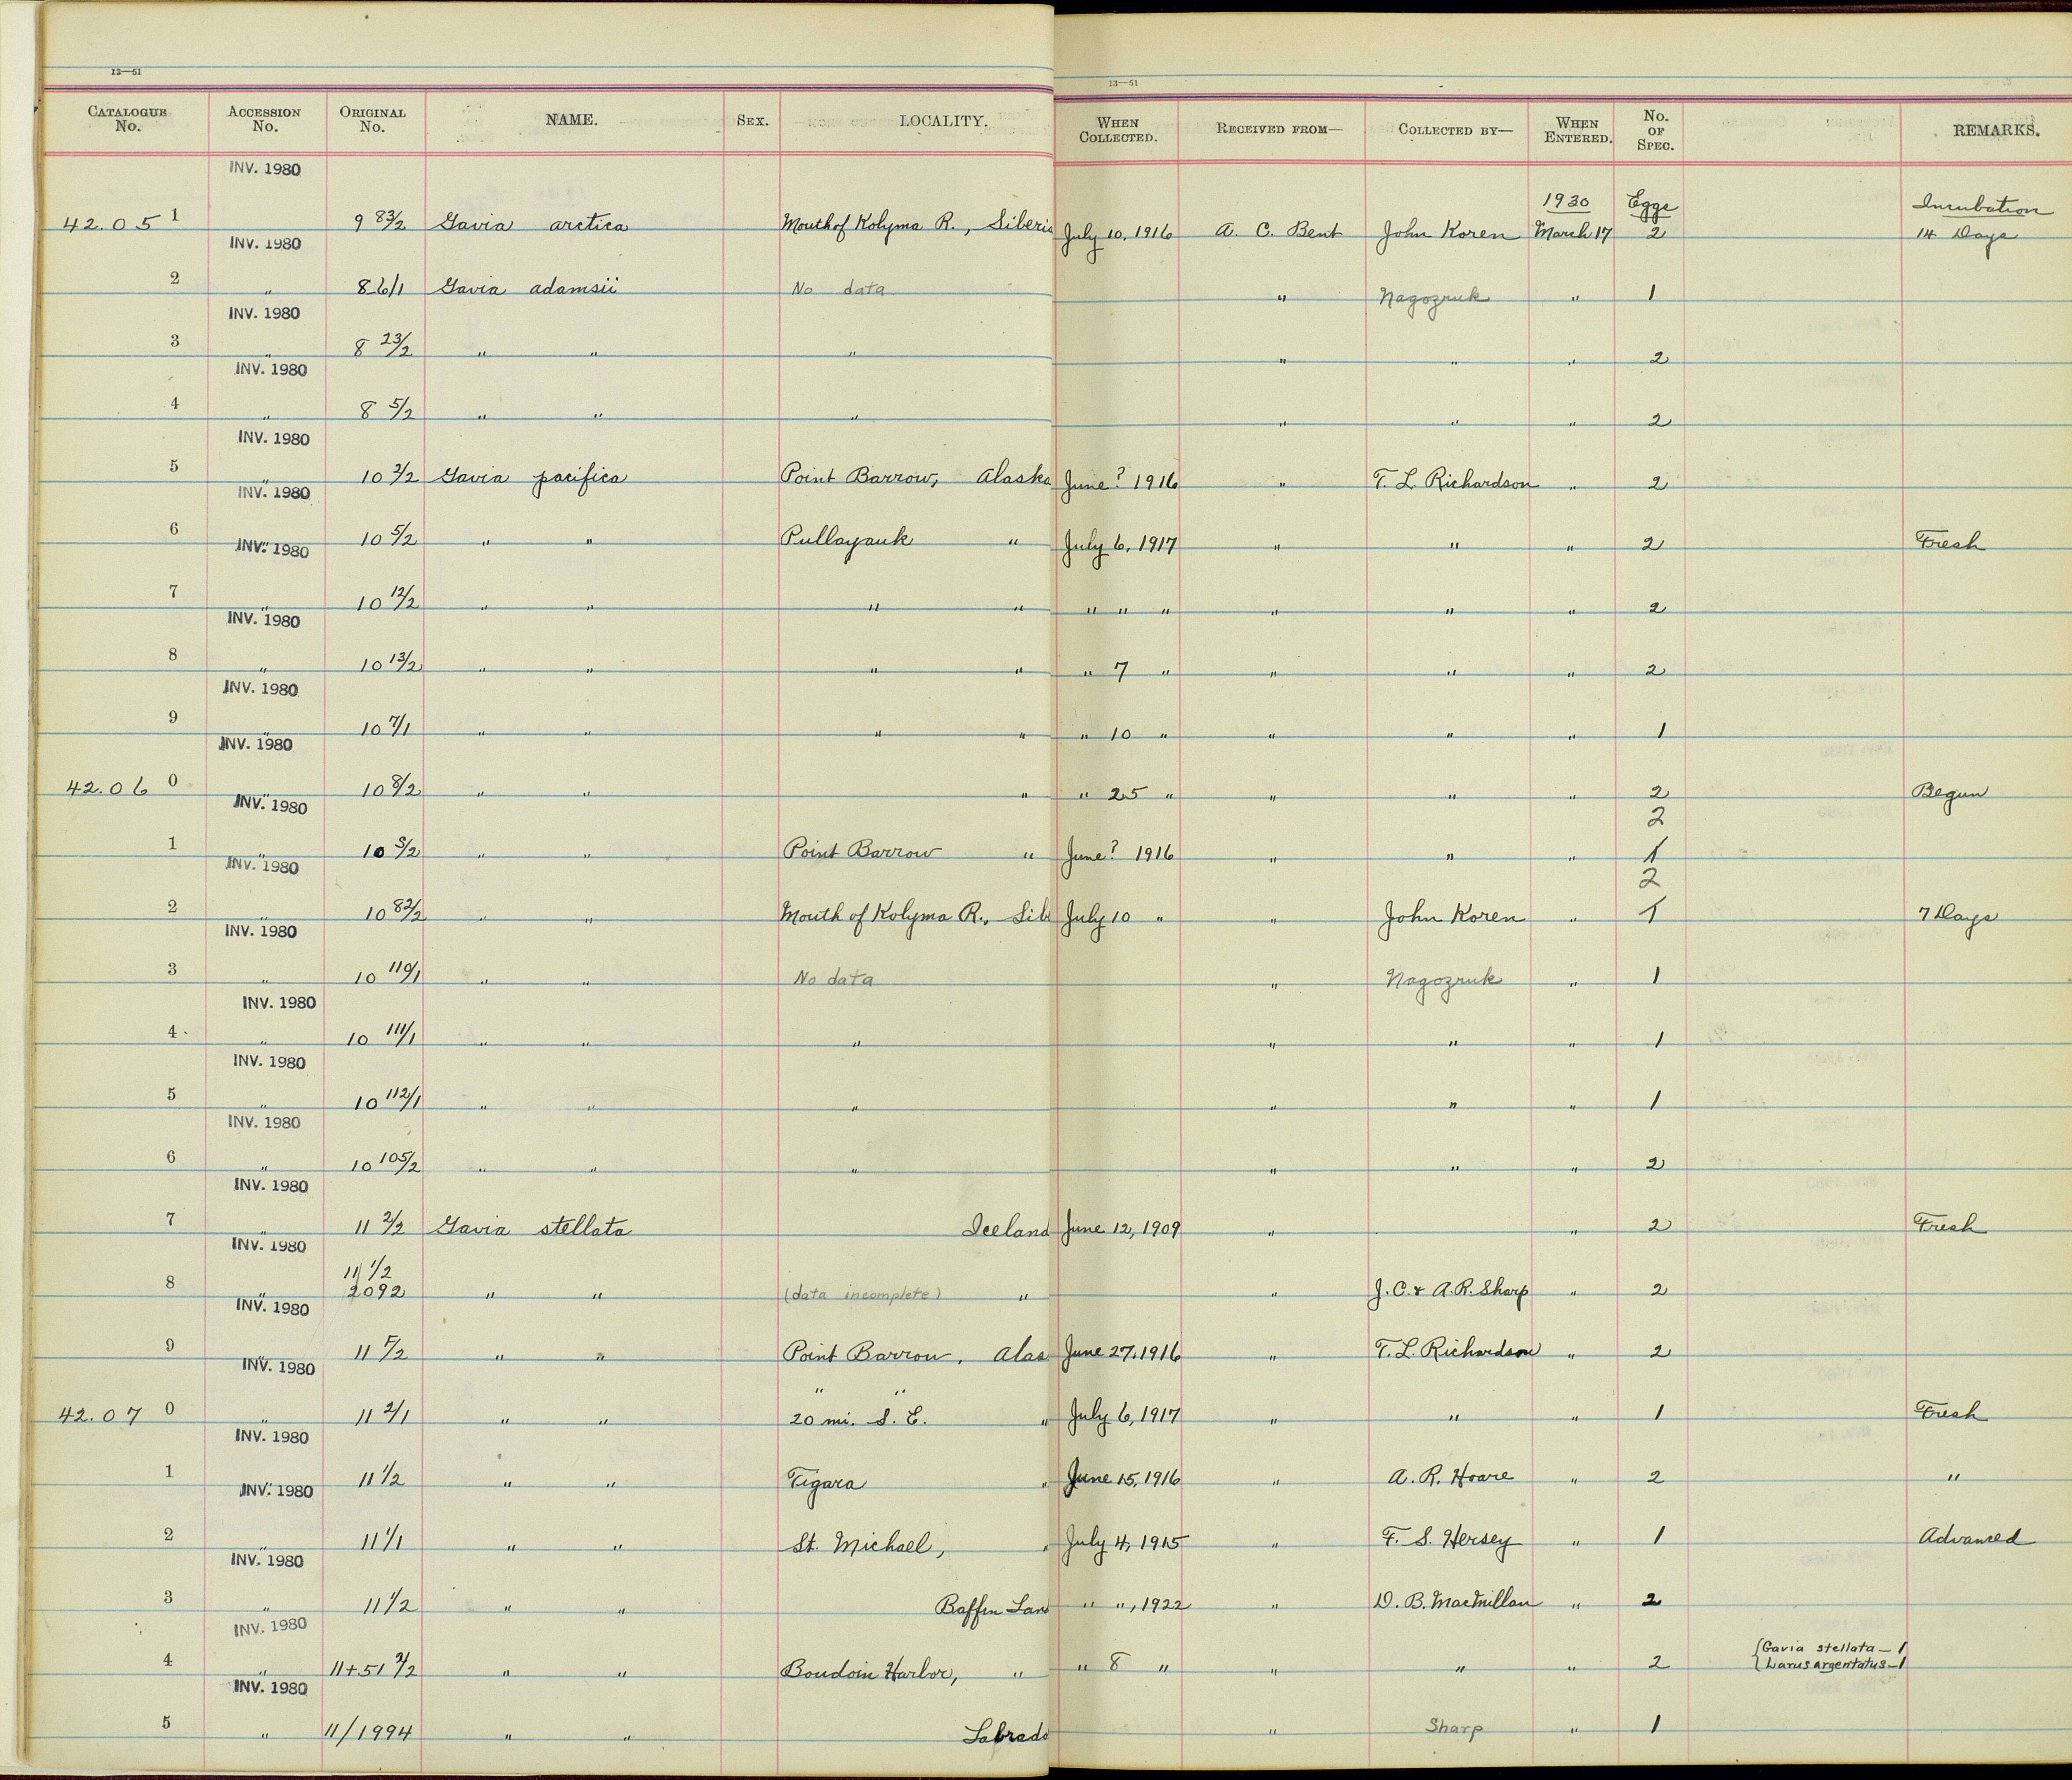 13—51 13—51
CATALOGUE No. ACCESSION No. ORIGINAL No. NAME. SEX. LOCALITY. WHEN COLLECTED. RECEIVED FROM— COLLECTED BY— WHEN ENTERED. No. OF SPEC. REMARKS.
INV. 1980
1930 Eggs Incubation
42.05 1 9 83/2 Gavia arctica Mouth of Kolyma R., Siberia July 10, 1916 A. C. Bent John Koren March 17 2 14 Days
INV. 1980
2 " 8 6/1 Gavia adamsii No data " Nagozruk " 1
INV. 1980
3 " 8 23/2 " " " " " " 2
INV. 1980
4 " 8 5/2 " " " " " " 2
INV. 1980
5 " 10 2/2 Gavia pacifica Point Barrow, Alaska June? 1916 " T. L. Richardson " 2
INV. 1980
6 " 10 5/2 " " Pullayauk " July 6, 1917 " " " 2 Fresh
INV. 1980
7 " 10 12/2 " " " " " " " " " " 2
INV. 1980
8 " 10 13/2 " " " " " 7 " " " " 2
INV. 1980
9 " 10 7/1 " " " " " 10 " " " " 1
INV. 1980
42.06 0 " 10 8/2 " " " " 25 " " " " 2 Begun
INV. 1980
2
1 " 10 3/2 " " Point Barrow " June? 1916 " " " 1
INV. 1980
2
2 " 10 82/2 " " Mouth of Kolyma R., Sib July 10 " " John Koren " 1 7 Days
INV. 1980
3 " 10 110/1 " " No data " Nagozruk " 1
INV. 1980
4 " 10 111/1 " " " " " " 1
INV. 1980
5 " 10 112/1 " " " " " " 1
INV. 1980
6 " 10 105/2 " " " " " " 2
INV. 1980
7 " 11 2/2 Gavia stellata Iceland June 12, 1909 " " 2 Fresh
INV. 1980
11 1/2
8 " 2092 " " (data incomplete) " " J. C. & A. R. Sharp " 2
INV. 1980
9 " 11 5/2 " " Point Barrow, Alas June 27, 1916 " T. L. Richardson " 2
INV. 1980
" "
42.07 0 " 11 2/1 " " 20 mi. S. E. " July 6, 1917 " " " 1 Fresh
INV. 1980
1 11 1/2 " " Tigara " June 15, 1916 " A. R. Hoare " 2 "
INV. 1980
2 " 11 1/1 " " St. Michael, " July 4, 1915 " F. S. Hersey " 1 Advanced
INV. 1980
3 " 11 1/2 " " Baffin Lan " ", 1922 " D. B. MacMillan " 2
INV. 1980
Gavia stellata — 1
4 " 11+51 2/2 " " Boudoin Harbor, " " 8 " " " " 2 Larus argentatus — 1
INV. 1980
5 " 11/1994 " " Labrado " Sharp " 1